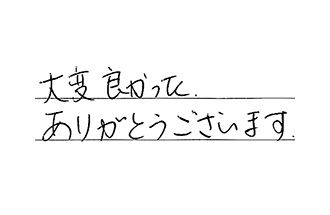 大変良かった.
ありがとうございます.